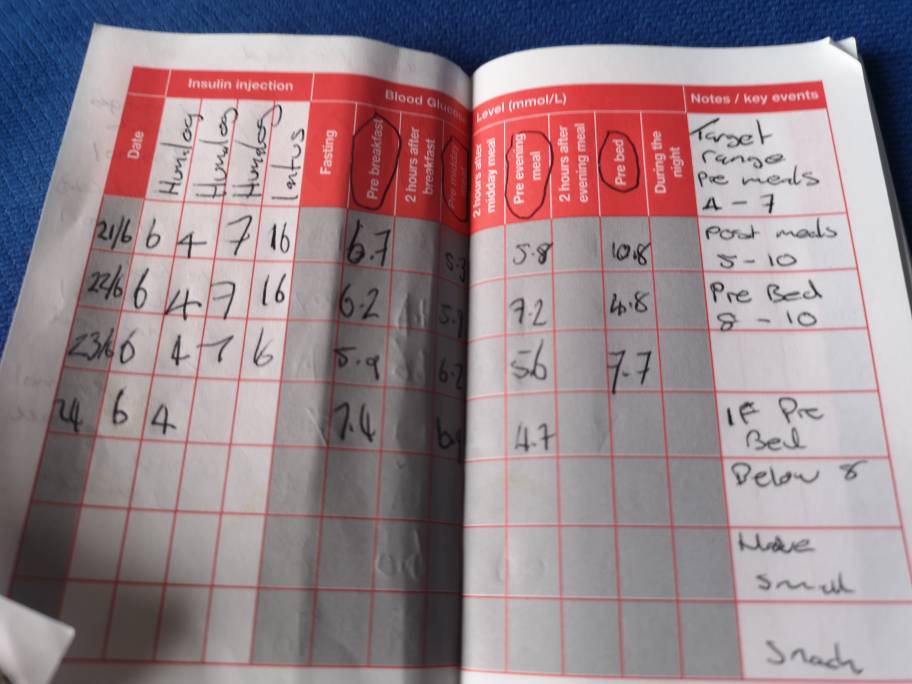 Insulin injection
Blood Gluco
Level (mmol/L)
Notes / key events
Date
Humalog
Humalog
Humalog
Lantus
Fasting
Pre breakfast
2 hours after breakfast
Pre midday
2 hours after midday meal
Pre evening meal
2 hours after evening meal
Pre bed
During the night
Target
range
Pre meals
4 - 7
21/6 6 4 7 16 6.7 5.8 10.8
Post meals
5 - 10
22/6 6 4 7 16 6.2 7.2 4.8
Pre Bed
8 - 10
23/6 6 4 7 16 5.9 6.2 5.6 7.7
24 6 4 7.4 4.7
IF Pre
Bed
Below 8
Have
small
snack